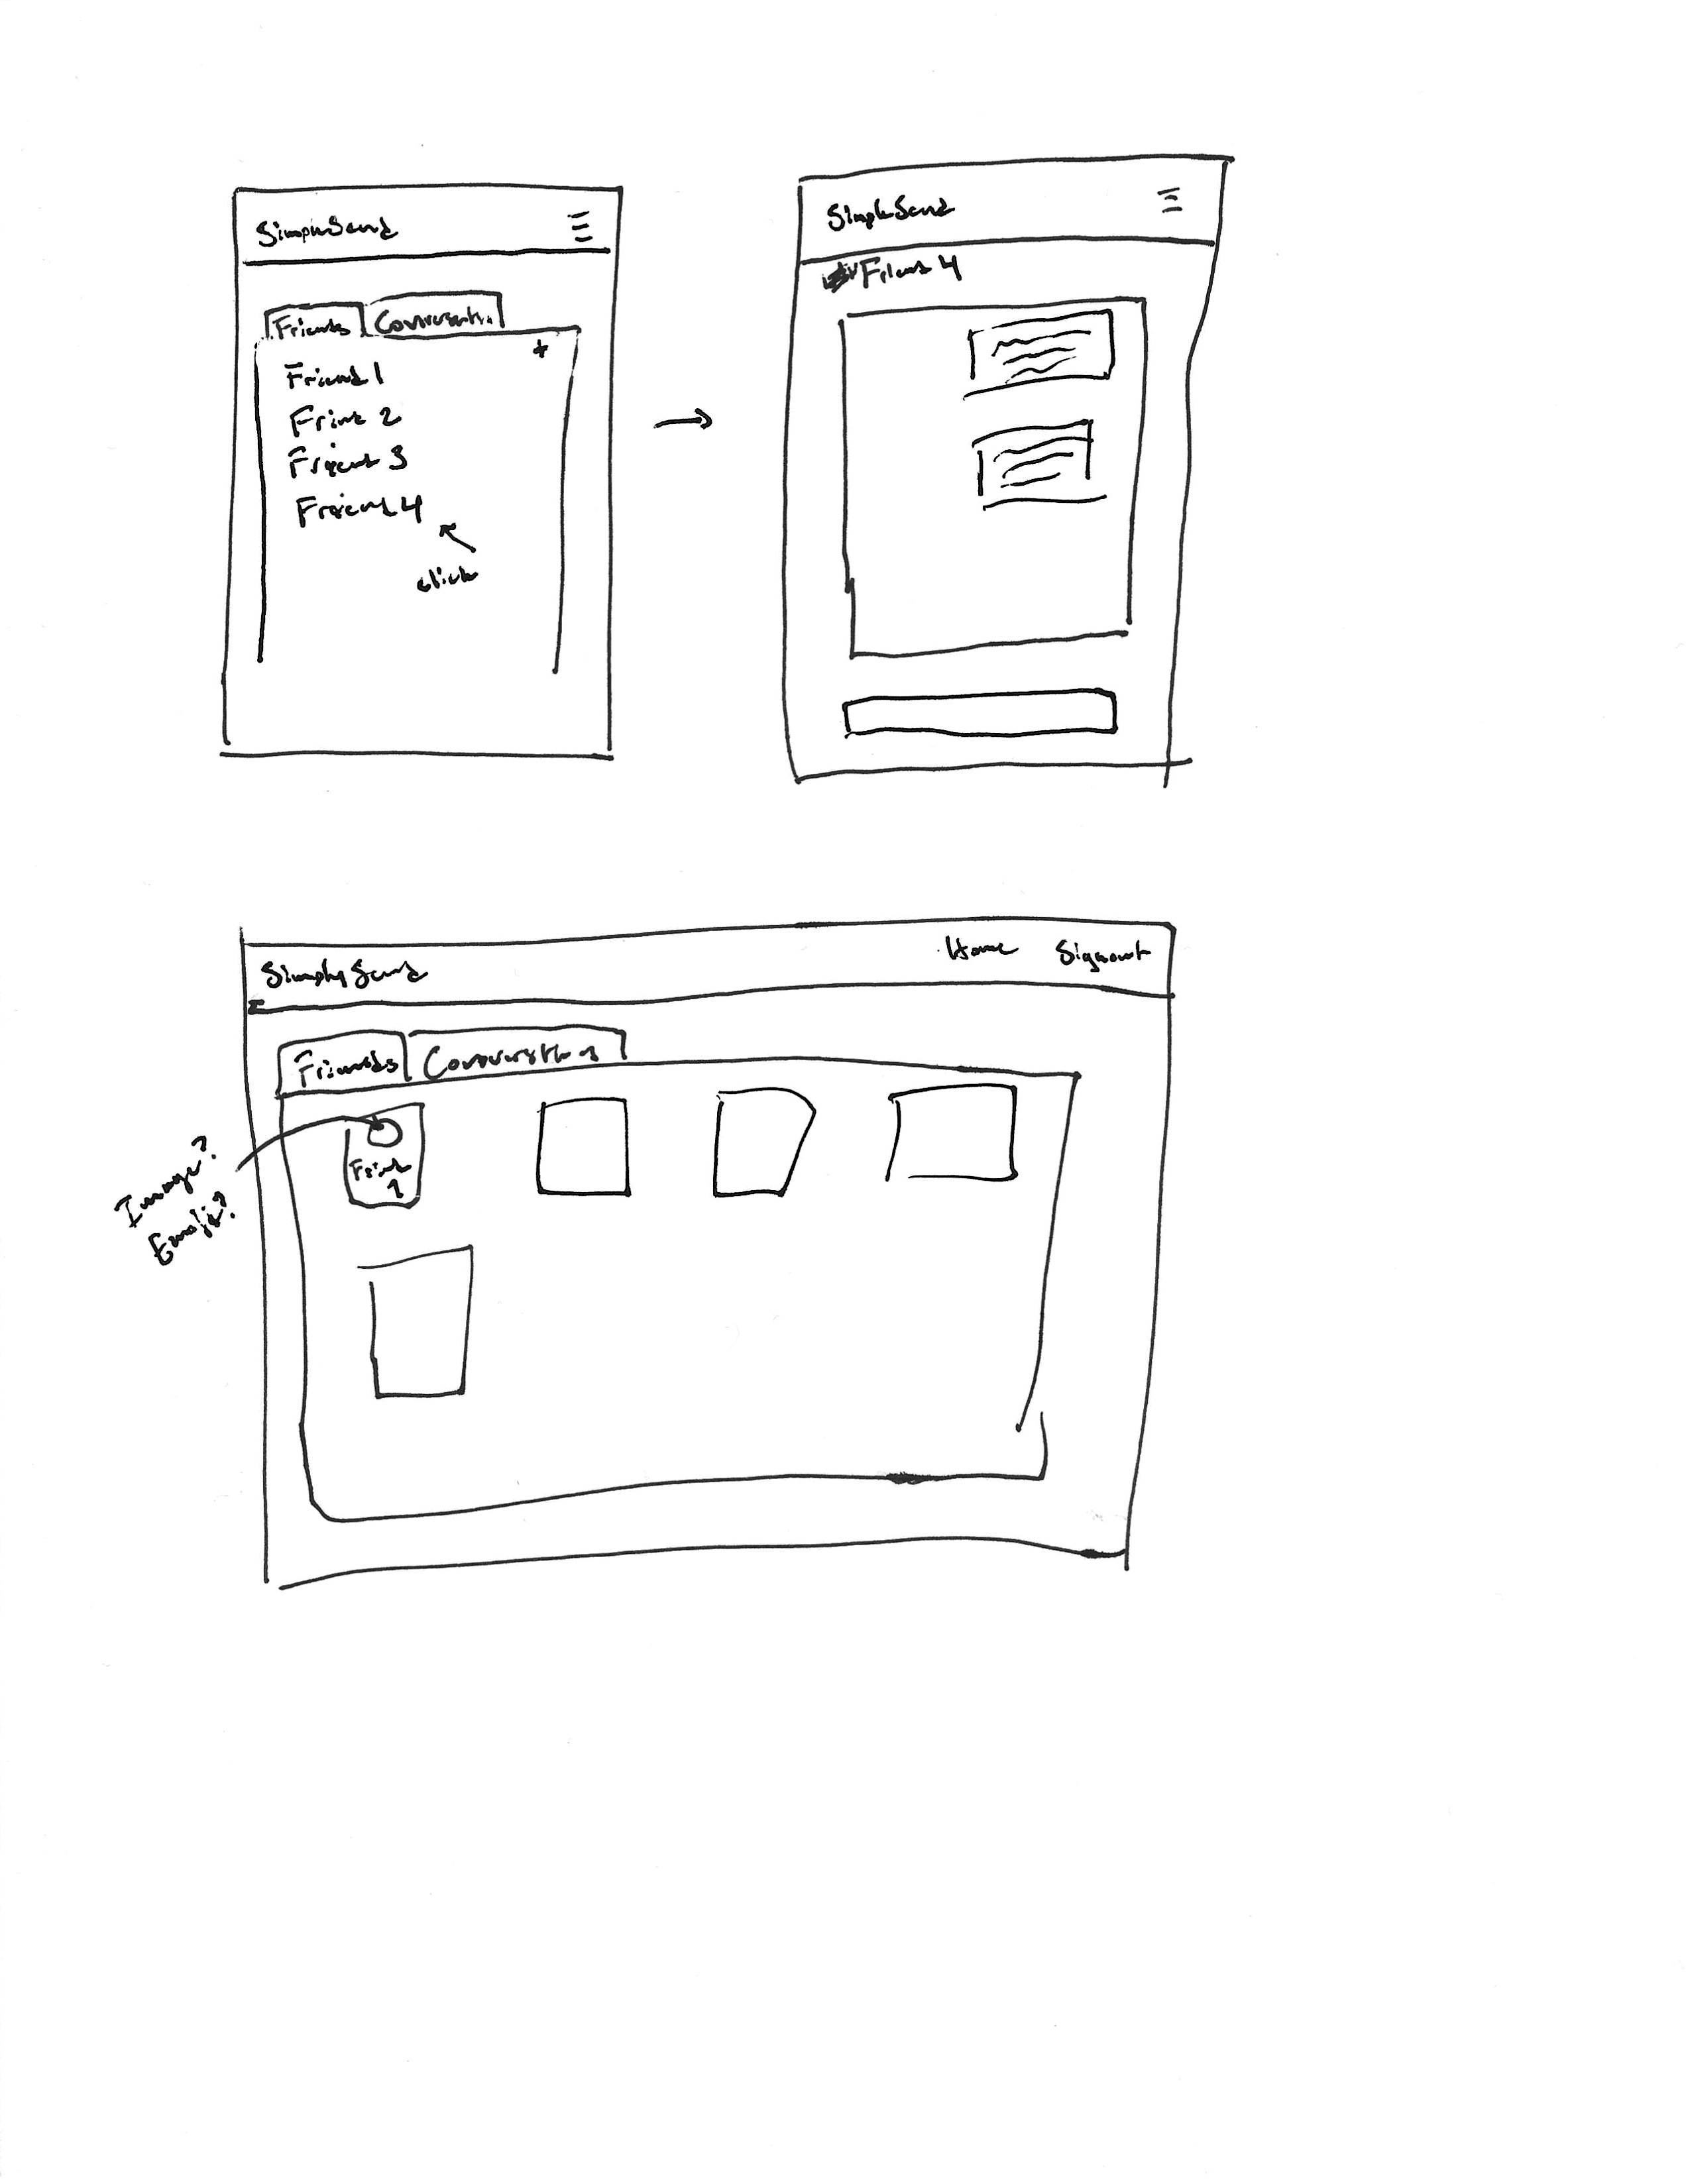 SimpleSend
Friends Conversatn
+
Friend 1
Frind 2
Friend 3
Friend 4
click
SimpleSend
Friend 4
SimplySend Home Signout
Friends Conversations
Friend
1
Image?
Emoji?